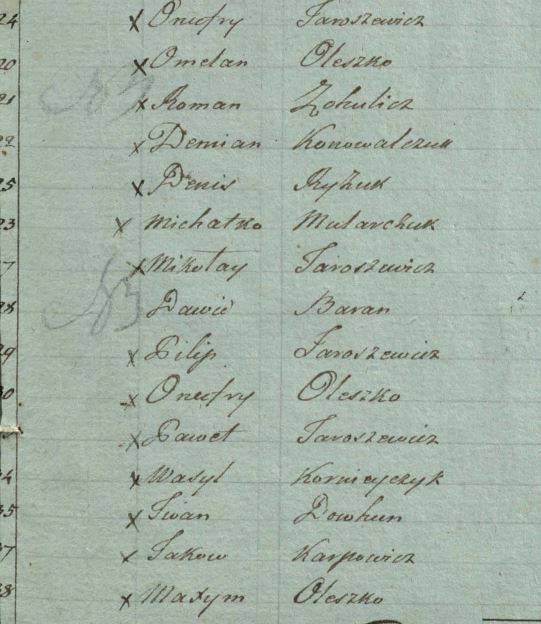 24 x Onufry Jaroszewicz
20 x Omelan Oleszko
21 x Roman Zohulicz
22 x Demian Konowalczuk
25 x Denis Ryżuk
23 x Michałko Mularczuk
7 x Mikołay Jaroszewicz
28 Dawid Baran
29 x Filip Jaroszewicz
30 x Onufry Oleszko
x Paweł Jaroszewicz
34 x Wasyl Korniejczyk
35 x Iwan Dowhun
37 x Jakow Karpowicz
38 x Maxym Oleszko